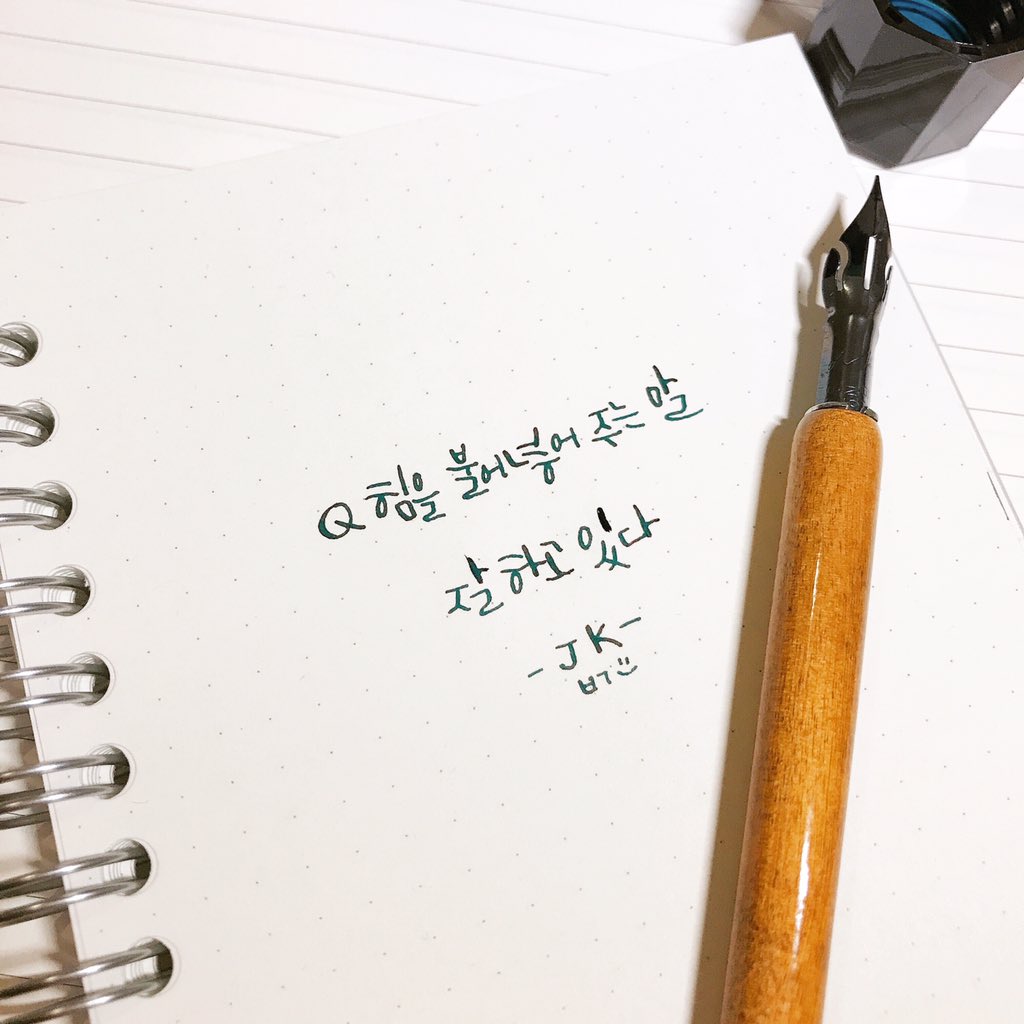 Q 힘을 불어넣어 주는 말
잘 하고 있다
- JK -